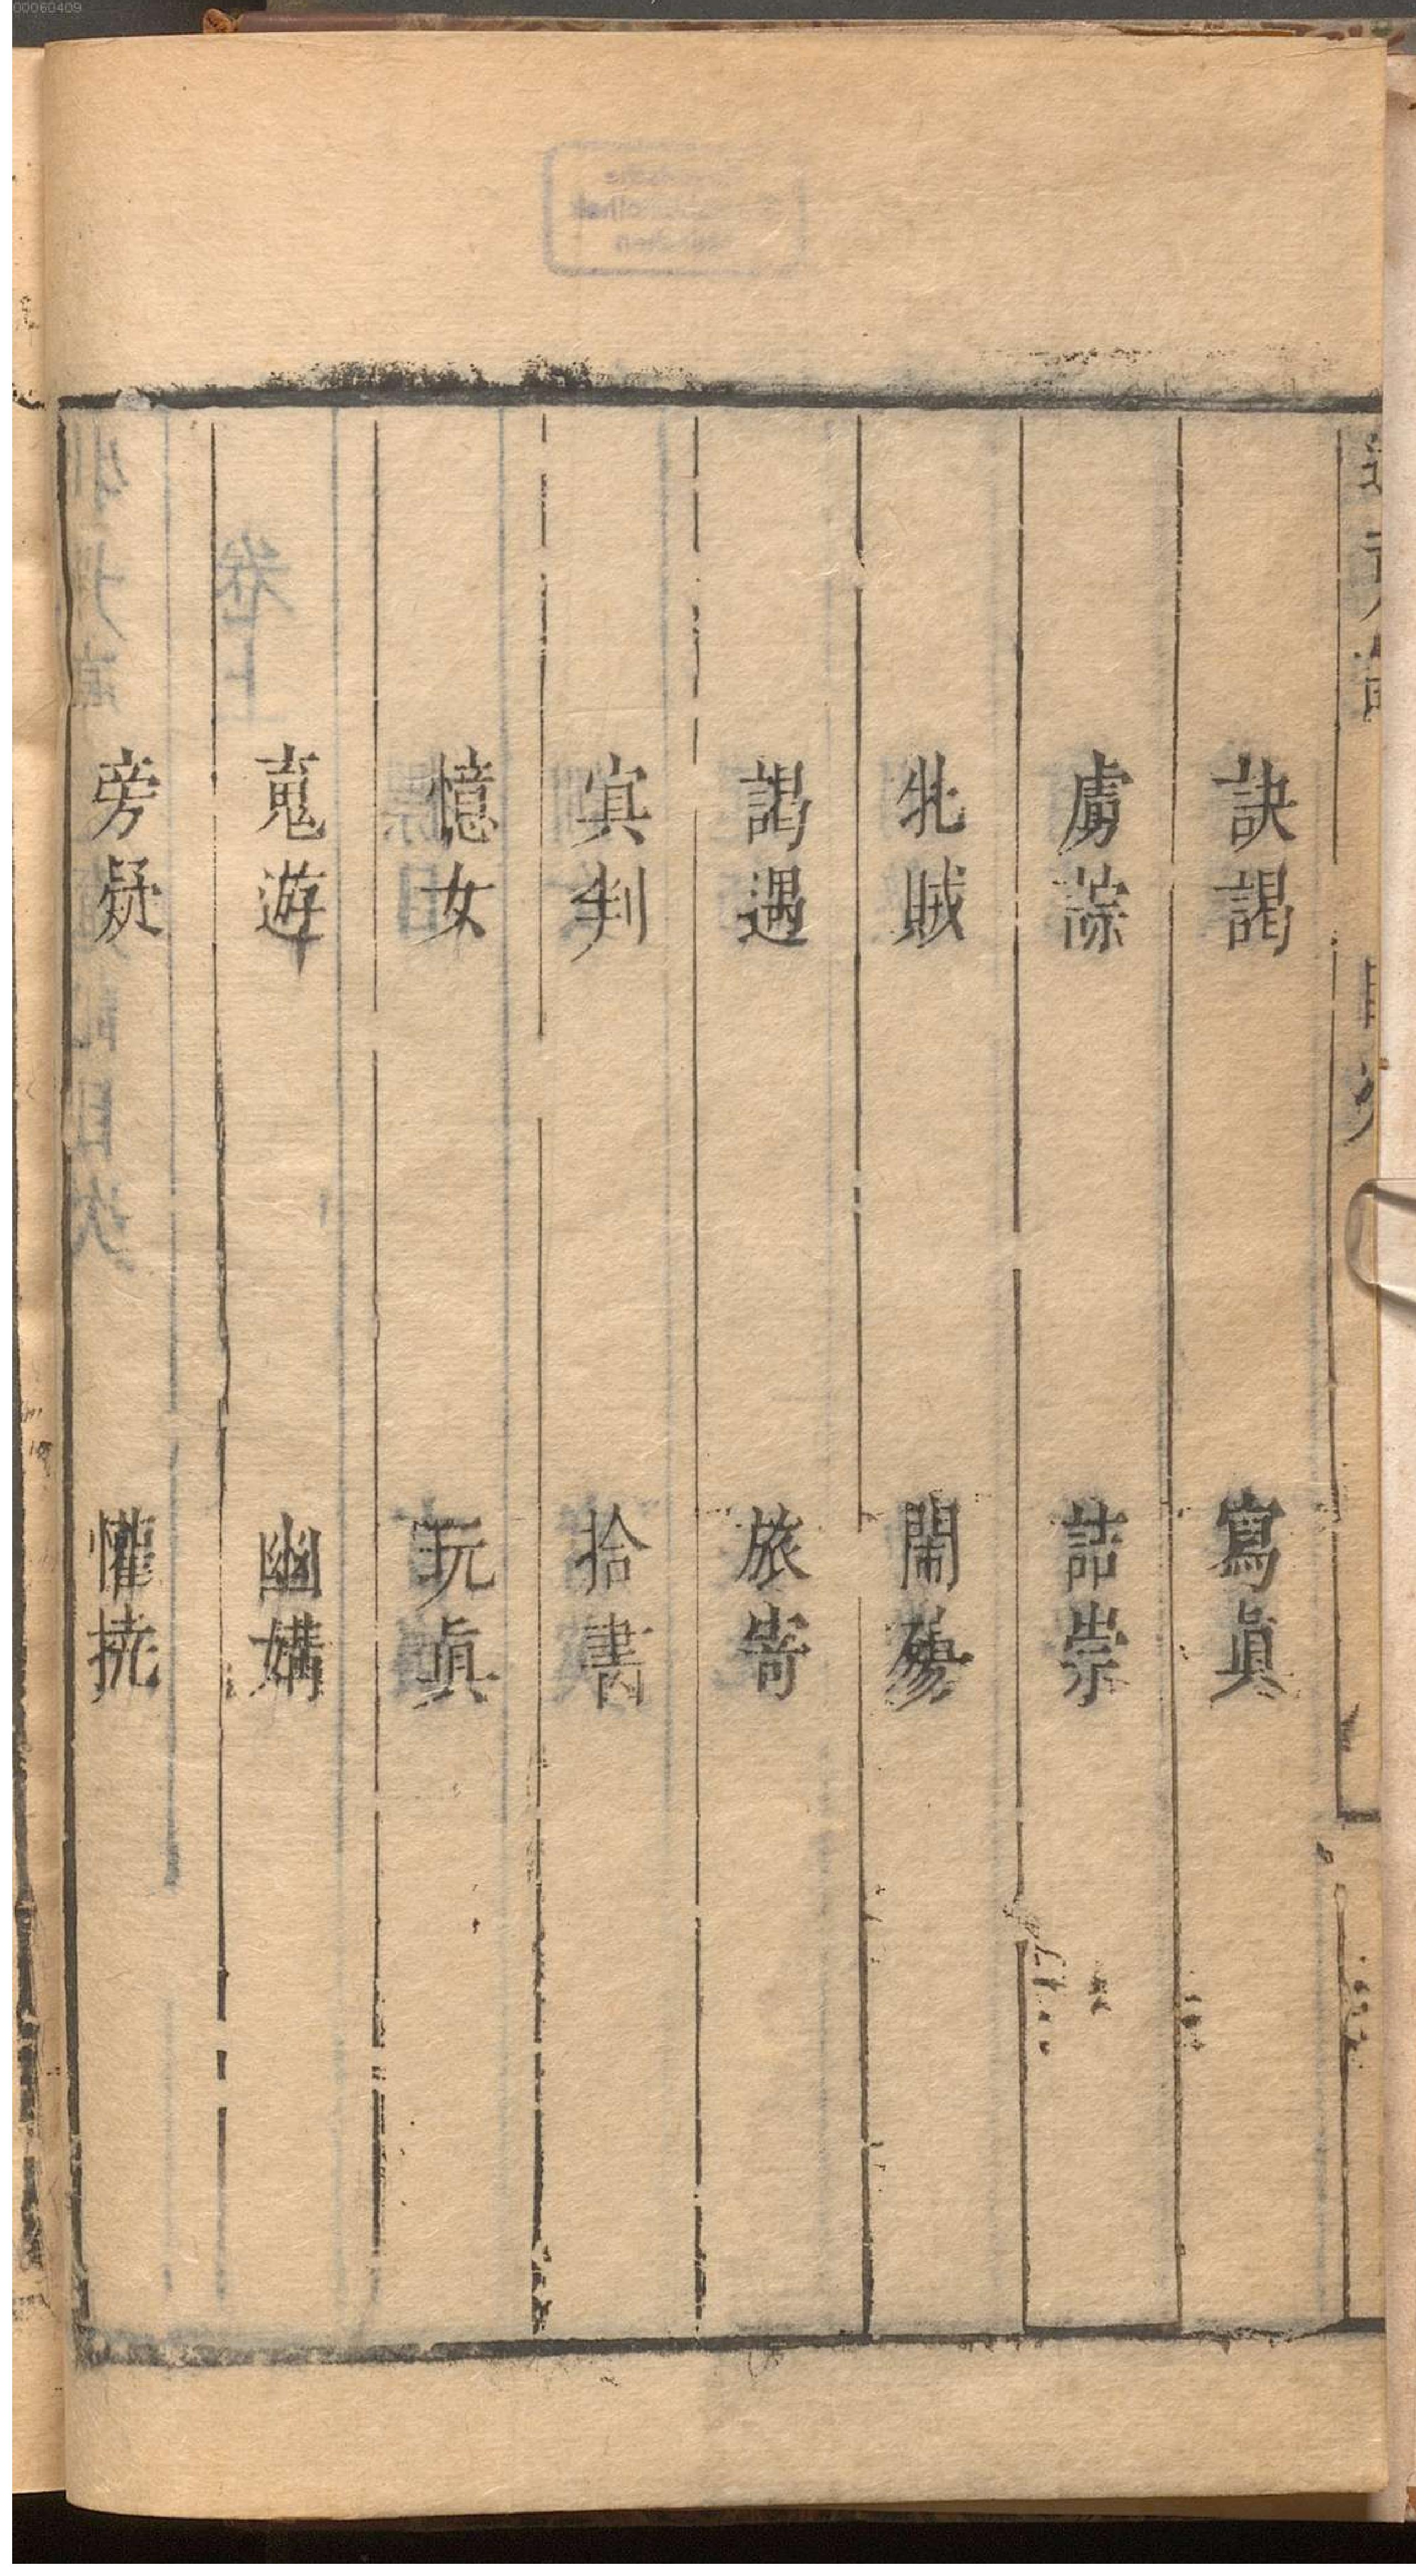 00060409
訣謁 寫眞
虜諜 詰崇
牝賊 鬧殤
謁遇 旅寄
㝠判 拾書
憶女 玩眞
䰟遊 幽媾
旁疑 懽撓